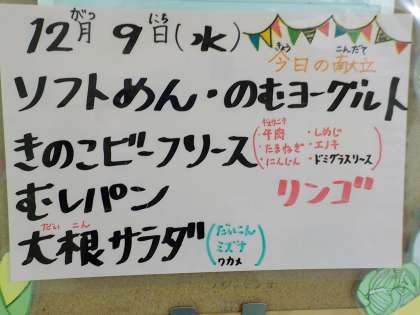 12月 9日(水)
がつ にち
きょう こんだて
今日の献立
ソフトめん・のむヨーグルト
きのこビーフソース
・牛肉 ・しめじ
・たまねぎ ・エノキ
・にんじん ・ドミグラスソース
むしパン
リンゴ
だい こん
大根サラダ
だいこん
ミズナ
ワカメ